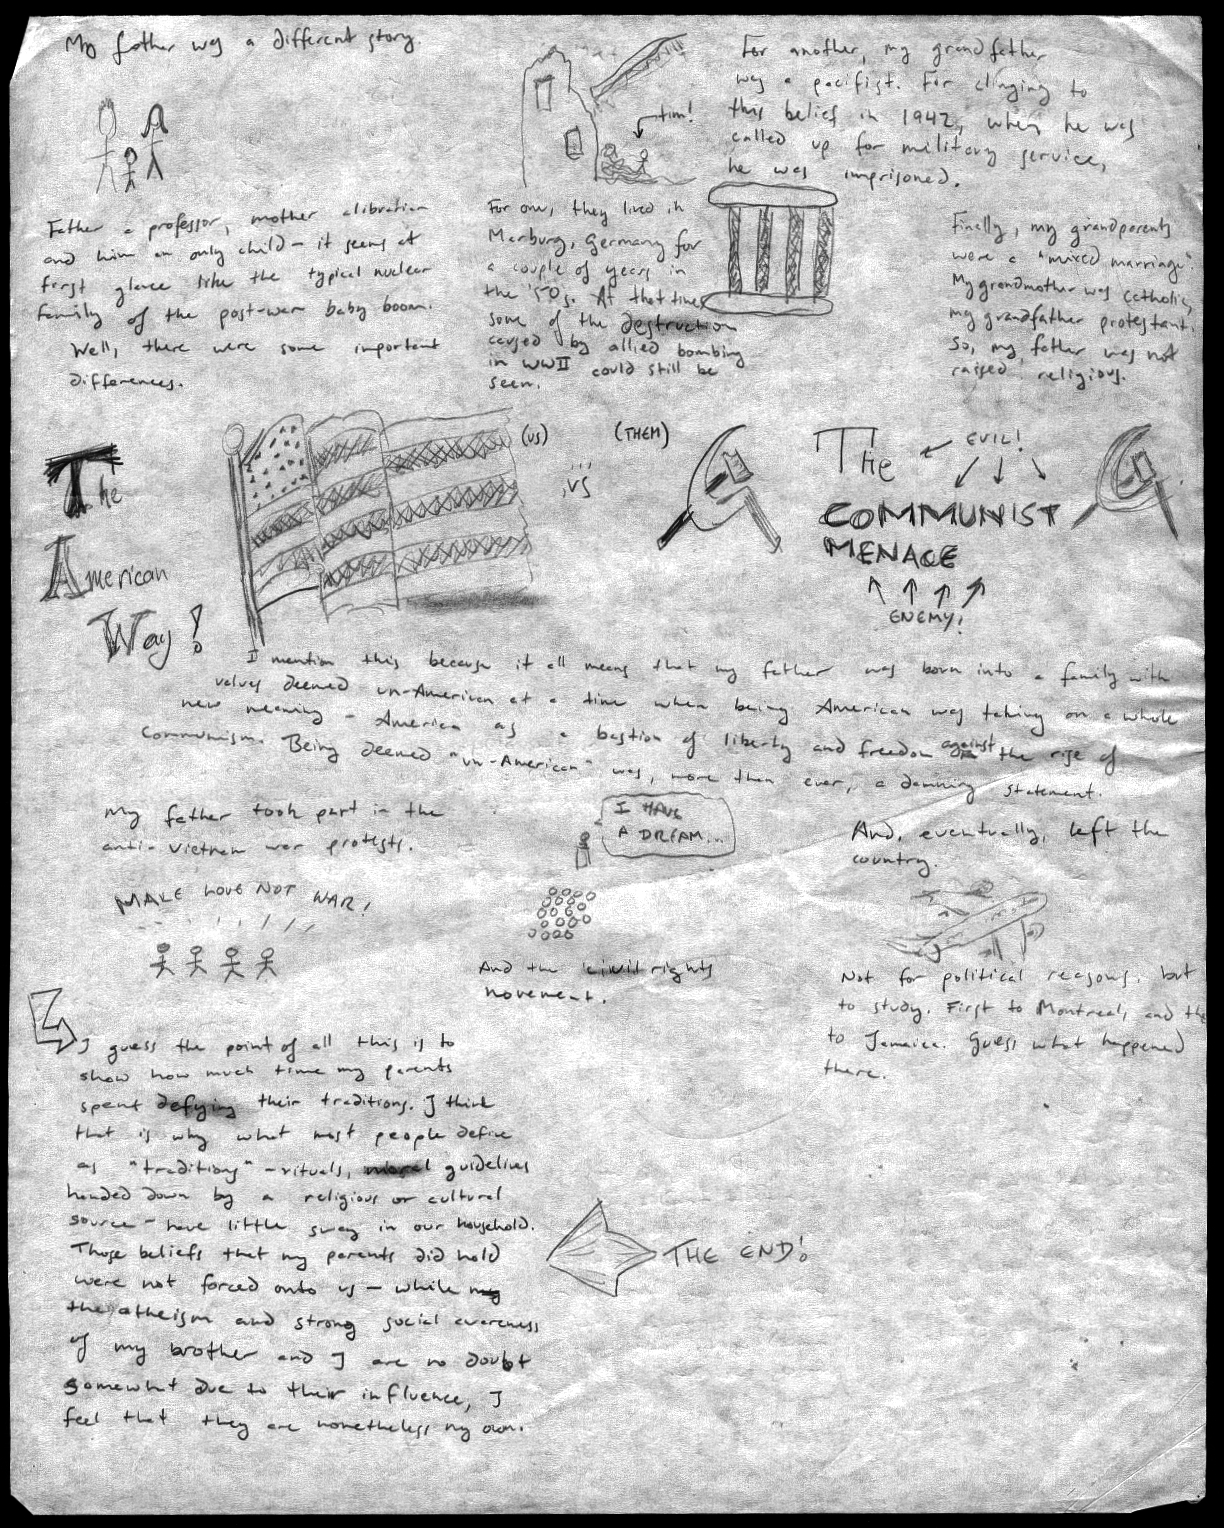 My father was a different story.
Father a professor, mother a librarian
and him an only child - it seems at
first glance like the typical nuclear
family of the post-war baby boom.
Well, there were some important
differences.
him!
For one, they lived in
Marburg, Germany for
a couple of years in
the '50s. At that time
some of the destruction
caused by allied bombing
in WWII could still be
seen.
For another, my grandfather
was a pacifist. For clinging to
this belief in 1942, when he was
called up for military service,
he was imprisoned.
Finally, my grandparents
were a "mixed marriage".
My grandmother was catholic,
my grandfather protestant.
So, my father was not
raised religious.
The
American
Way!
(US)
vs
(THEM)
The
EVIL!
COMMUNIST
MENACE
ENEMY!
I mention this because it all means that my father was born into a family with
values deemed un-American at a time when being American was taking on a whole
new meaning - America as a bastion of liberty and freedom against the rise of
Communism. Being deemed "un-American" was, more than ever, a damning statement.
My father took part in the
anti-Vietnam war protests.
MAKE LOVE NOT WAR!
I HAVE
A DREAM...
And the civil rights
movement.
And, eventually, left the
country.
Not for political reasons, but
to study. First to Montreal, and the
to Jamaica. Guess what happened
there.
I guess the point of all this is to
show how much time my parents
spent defying their traditions. I think
that is why what most people define
as "traditions" - rituals, moral guidelines
handed down by a religious or cultural
source - have little sway in our household.
Those beliefs that my parents did hold
were not forced onto us - while my
the atheism and strong social awareness
of my brother and I are no doubt
somewhat due to their influence, I
feel that they are nonetheless my own.
THE END!